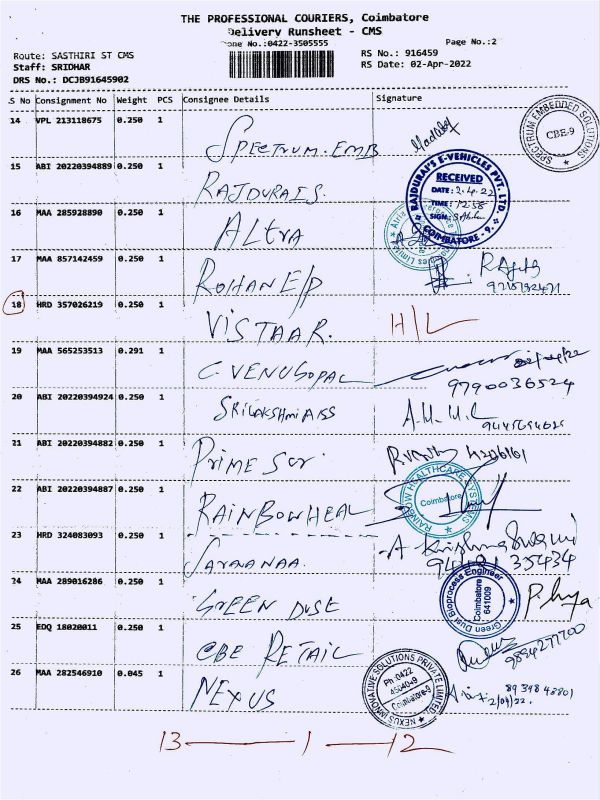 THE PROFESSIONAL COURIERS, Coimbatore
Delivery Runsheet - CMS
Phone No.:0422-3505555
Page No.:2
Route: SASTHIRI ST CMS
RS No.: 916459
Staff: SRIDHAR
RS Date: 02-Apr-2022
DRS No.: DCJB91645902
S No Consignment No Weight PCS Consignee Details Signature
14 VPL 213118675 0.250 1 SPECTRUM. EMB
SPECTRUM EMBEDDED SOLUTIONS CBE-9
15 ABI 20220394889 0.250 1 RAJDURAIS.
RAJDURAI'S E-VEHICLES PVT. LTD.
RECEIVED
DATE: 2.4.22
TIME: 12.58
SIGN:
COIMBATORE - 9.
16 MAA 285928890 0.250 1 ALtrA
17 MAA 857142459 0.250 1 ROHAN E/P
18 HRD 357026219 0.250 1 VISTAAR. H/L
19 MAA 565253513 0.291 1 C. VENUGOPAL
9790036524
20 ABI 20220394924 0.250 1 SRI LAKSHMI AISS A.M.M.L
21 ABI 20220394882 0.250 1 PRIME Scr. 4206161
22 ABI 20220394887 0.250 1 RAINBOW HEAL
RAINBOW HEALTHCARE SYSTEMS Coimbatore
23 HRD 324083093 0.250 1 SARAANAA. A Krishna Swami
35434
24 MAA 289016286 0.250 1 GREEN DUST
Green Dust Bioprocess Engineer Coimbatore 641009
25 EDQ 18020011 0.250 1 CBE RETAIL
9894277700
26 MAA 282546910 0.045 1 NEXUS
NEXUS INNOVATIVE SOLUTIONS PRIVATE LIMITED
Ph:0422
Coimbatore-9
89398 43801
2/04/22.
13 — 1 — 12